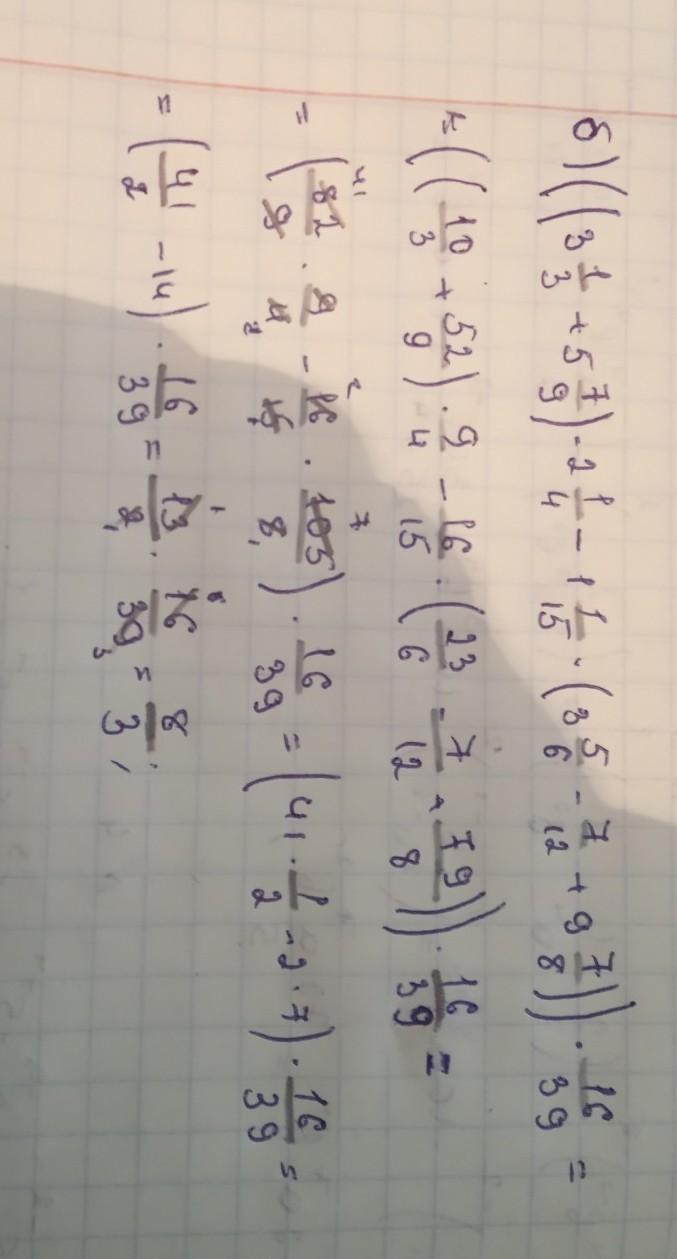 б) ((3 1/3 + 5 7/9) · 2 1/4 − 1 1/15 · (3 5/6 − 7/12 + 9 7/8)) · 16/39 =
= ((10/3 + 52/9) · 9/4 − 16/15 · (23/6 − 7/12 + 79/8)) · 16/39 =
= (82/9 · 9/4 − 16/15 · 105/8) · 16/39 = (41 · 1/2 − 2 · 7) · 16/39 =
= (41/2 − 14) · 16/39 = 13/2 · 16/39 = 8/3;